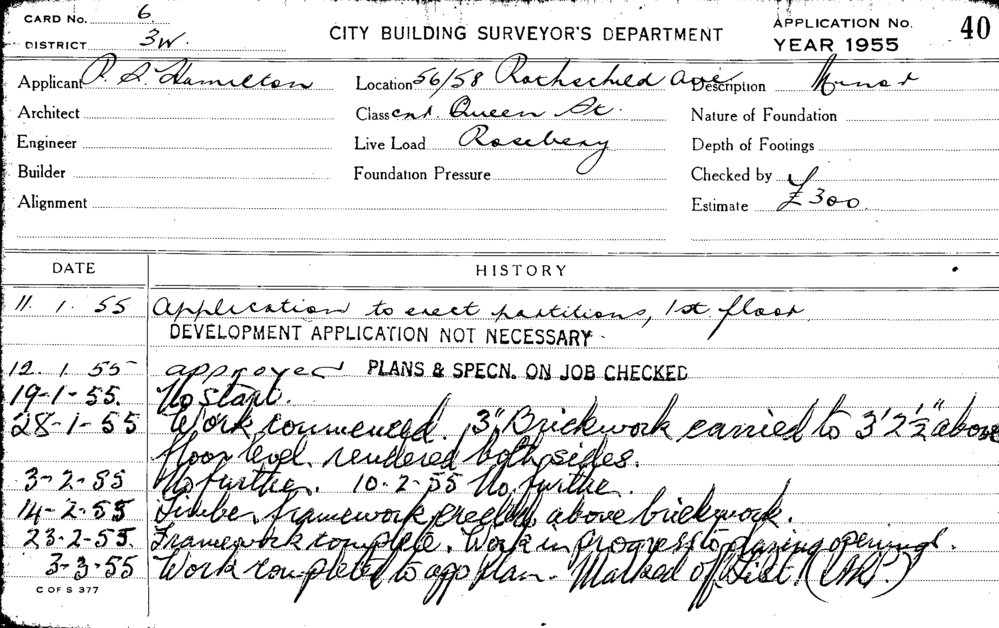 CARD No. 6
DISTRICT 3W.
CITY BUILDING SURVEYOR'S DEPARTMENT
APPLICATION No. 40
YEAR 1955
Applicant P. S. Hamilton
Location 56/58 Rothschild Ave
Description Minor
Architect
Class cnr. Queen St.
Nature of Foundation
Engineer
Live Load Rosebery
Depth of Footings
Builder
Foundation Pressure
Checked by
Alignment
Estimate £300.
DATE HISTORY
11. 1. 55 Application to erect partitions, 1st. floor.
DEVELOPMENT APPLICATION NOT NECESSARY
12. 1. 55 approved PLANS & SPECN. ON JOB CHECKED
19-1-55. No start.
28-1-55 Work commenced. 3" Brickwork carried to 3' 2½" above
floor level. rendered both sides.
3-2-55 No further. 10-2-55 No further.
14-2-55 Timber framework erected above brickwork.
23-2-55. Framework complete. Work in progress to glazing openings.
3-3-55 Work completed to app plan. Marked off List.
C OF S 377